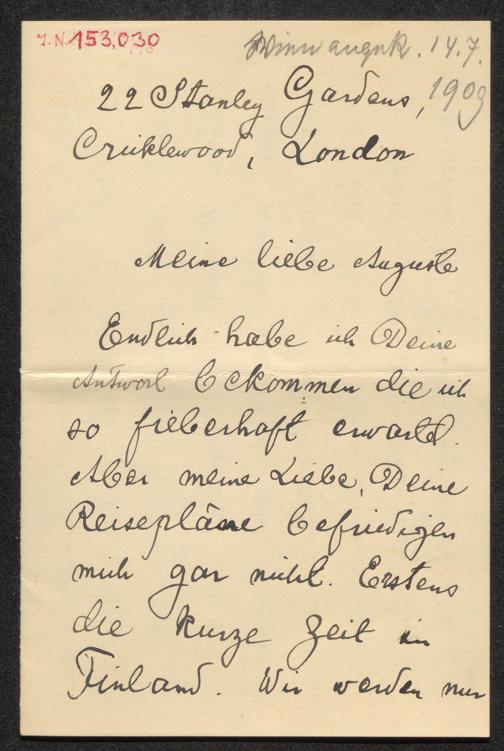 J.N. 153.030
Wien angek. 14.7.
1909
22 Stanley Gardens,
Cricklewood, London
Meine liebe Auguste
Endlich habe ich Deine
Antwort bekommen die ich
so fieberhaft erwartet.
Aber meine Liebe, Deine
Reisepläne befriedigen
mich gar nicht. Erstens
die kurze Zeit in
Finland. Wir werden nur